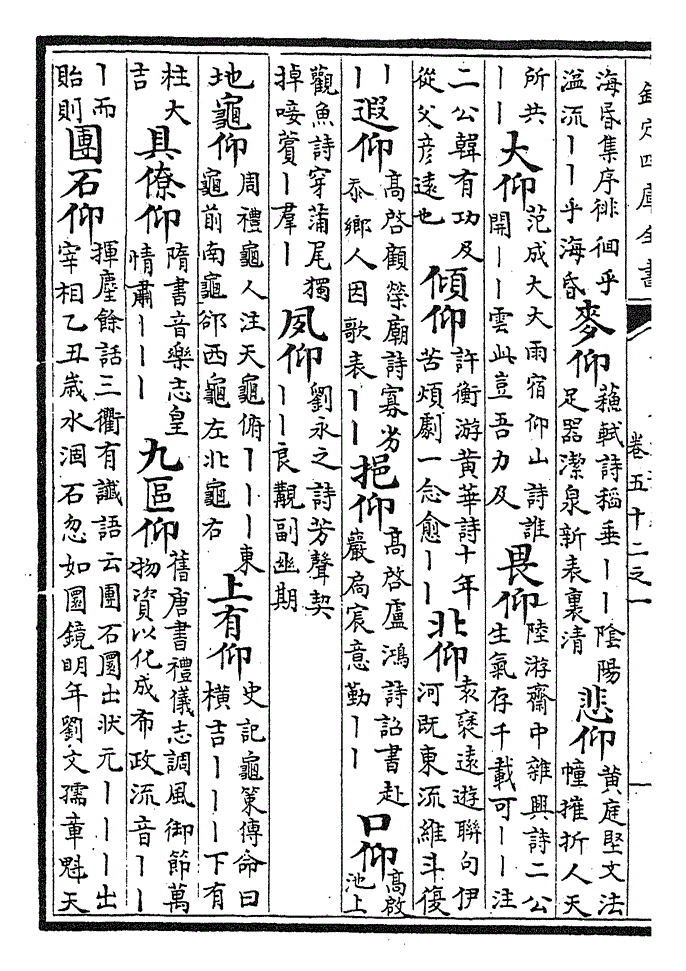 欽定四庫全書 卷五十二之一 一
海昏集序徘徊乎溢流丨丨乎海昏 麥仰 蘇軾詩稻垂丨丨陰陽足器潔泉新表裏清 悲仰 黄庭堅文法幢摧折人天
所共丨丨 大仰 范成大大雨宿仰山詩誰開丨丨雲此豈吾力及 畏仰 陸游齋中雜興詩二公生氣存千載可丨丨注
二公韓有功及從父彦遠也 傾仰 許衡游黄華詩十年苦煩劇一念愈丨丨 北仰 袁褧遠遊聯句伊河既東流維斗復
丨丨 遐仰 髙啓顧榮廟詩寡劣忝鄉人因歌表丨丨 挹仰 髙啓盧鴻詩詔書赴巖扃宸意勤丨丨 口仰 髙啟池上
觀魚詩穿蒲尾獨掉唼薲丨羣丨 夙仰 劉永之詩芳聲契丨丨良覯副幽期
地龜仰 周禮龜人注天龜俯丨丨丨東龜前南龜郤西龜左北龜右 上有仰 史記龜策傳命曰横吉丨丨丨下有
柱大吉 具僚仰 隋書音樂志皇情肅丨丨丨 九區仰 舊唐書禮儀志調風御節萬物資以化成布政流音丨丨
丨而貽則 團石仰 揮麈餘話三衢有讖語云團石圜出狀元丨丨丨出宰相乙丑嵗水涸石忽如圜鏡明年劉文孺章魁天